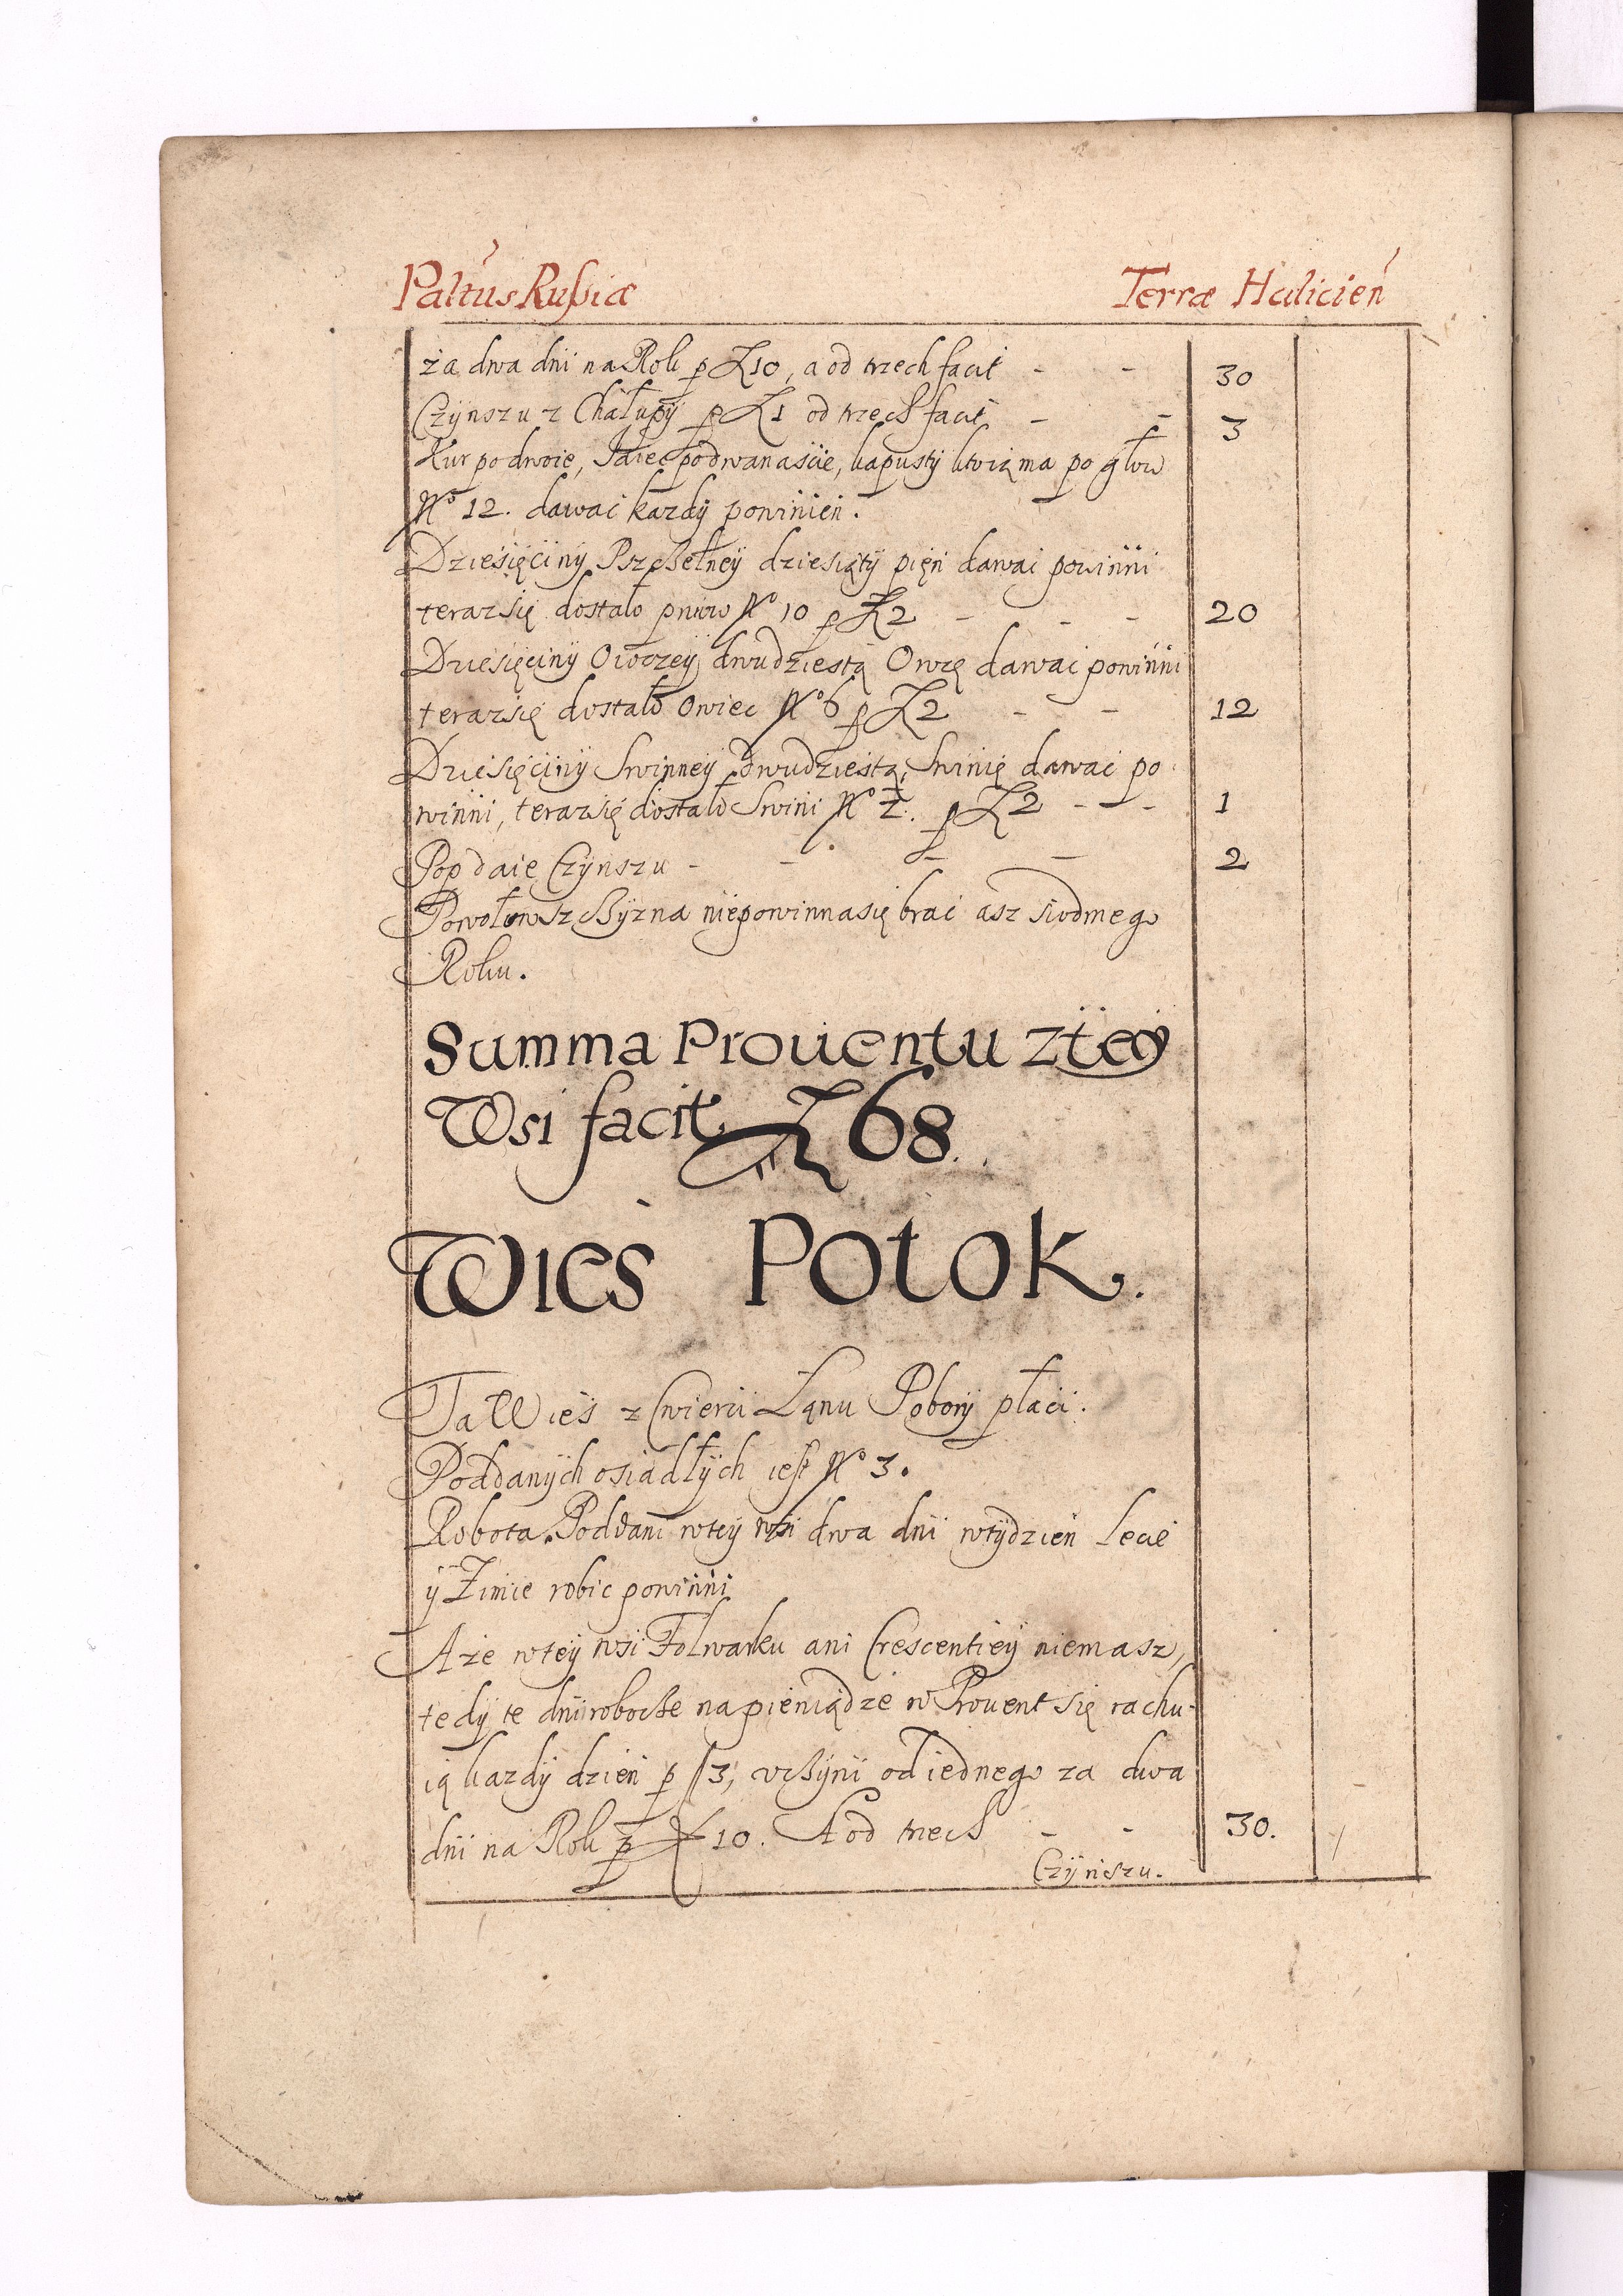 Paltus Rusſiæ Terræ Halicień
za dwa dni na Rok p Zł 10, a od trzech facit - - 30
Czÿnszu z Chałupÿ p Zł 1 od trzech facit - - 3
Kur po dwoie, Jaiec po dwanascie, kapustÿ ktorą ma po głow
No 12. dawać kazdÿ powinien.
Dziesięcinÿ Pszczelneÿ dziesiątÿ pień dawać powinni
teraz się dostało pniow No 10 p Zł 2 - - - 20
Dziesięcinÿ Owczeÿ dwudziestą Owcę dawać powinni
teraz się dostało Owiec No 6 p Zł 2 - - 12
Dziesięcinÿ Swinneÿ dwudziestą Swinię dawać po
winni, teraz się dostało Swini No ½. p Zł 2 - - - 1
Pop daie Czÿnszu - - - - 2
Powołowszczÿzna niepowinna się brać asz siodmego
Roku.
Summa Prouentu z teÿ
Wsi facit Zł 68.
Wieś Potok.
Ta Wieś z Cwierci Łanu Poborÿ płaci.
Poddanÿch osiadłÿch iest No 3.
Robota. Poddani w teÿ wsi dwa dni w tÿdzień Lecie
ÿ Zimie robic powinni
A że w teÿ wsi Folwarku ani Crescentieÿ niemasz,
tedÿ te dni robocze na pieniądze w Prouent się rachu-
ią kazdÿ dzień p g 3, vczÿni od iednego za dwa
dni na Rok p Zł 10. A od trzech - - 30.
Czÿnszu.